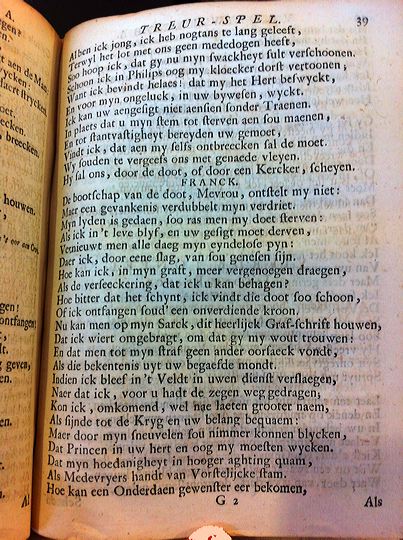 A.
TREUR-SPEL. 39
Alben ick jong, ick heb nogtans te lang geleeft,
Terwyl het lot met ons geen mededogen heeft,
Soo hoop ick, dat gy nu myn swackheyt sult verschoonen.
Schoon ick in Philips oog my kloecker dorst vertoonen;
Want ick bevindt helaes! dat my het Hert beswyckt,
En voor myn ongeluck, in uw bywesen, wyckt.
Ick kan uw aengesigt niet aensien sonder Traenen.
In plaets dat u myn stem tot sterven aen sou maenen,
En tot stantvastigheyt bereyden uw gemoet,
Vindt ick, dat aen my selfs ontbreecken sal de moet.
Wy souden te vergeefs ons met genaede vleyen.
Hy sal ons, door de doot, of door een Kercker, scheyen.
FRANCK.
De bootschap van de doot, Mevrou, ontstelt my niet:
Maer een gevankenis verdubbelt myn verdriet.
Myn lyden is gedaen, soo ras men my doet sterven:
Als ick in't leve blyf, en uw gesigt moet derven,
Vernieuwt men alle daeg myn eyndelose pyn:
Daer ick, door eene slag, van sou genesen sijn.
Hoe kan ick, in myn graft, meer vergenoegen draegen,
Als de verseeckering, dat ick u kan behagen?
Hoe bitter dat het schynt, ick vindt die door soo schoon,
Of ick ontfangen soud' een onverdiende kroon,
Nu kan men op myn Sarck, dit heerlijck Graf-schrift houwen,
Dat ick wiert omgebragt, om dat gy my wout trouwen:
En dat men tot myn straf geen ander oorsaeck vondt,
Als die bekentenis uyt uw begaefde mondt.
Indien ick bleef in't Veldt in uwen dienst verslaegen,
Naer dat ick, voor u hadt de zegen weg gedragen;
Kon ick, omkomend, wel nae laeten grooter naem,
Als sijnde tot de Kryg en uw belang bequaem:
Maer door myn sneuvelen sou nimmer konnen blycken,
Dat Princen in uw hert en oog my moesten wycken.
Dat myn hoedanigheyt in hooger aghting quam,
Als Medevryers handt van Vorstelijcke stam.
Hoe kan een Onderdaen gewenster eer bekomen,
G 2 Als